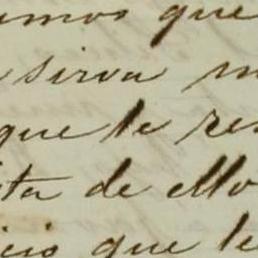 umos que
sirva m
que le res
ta de ello
icio que le